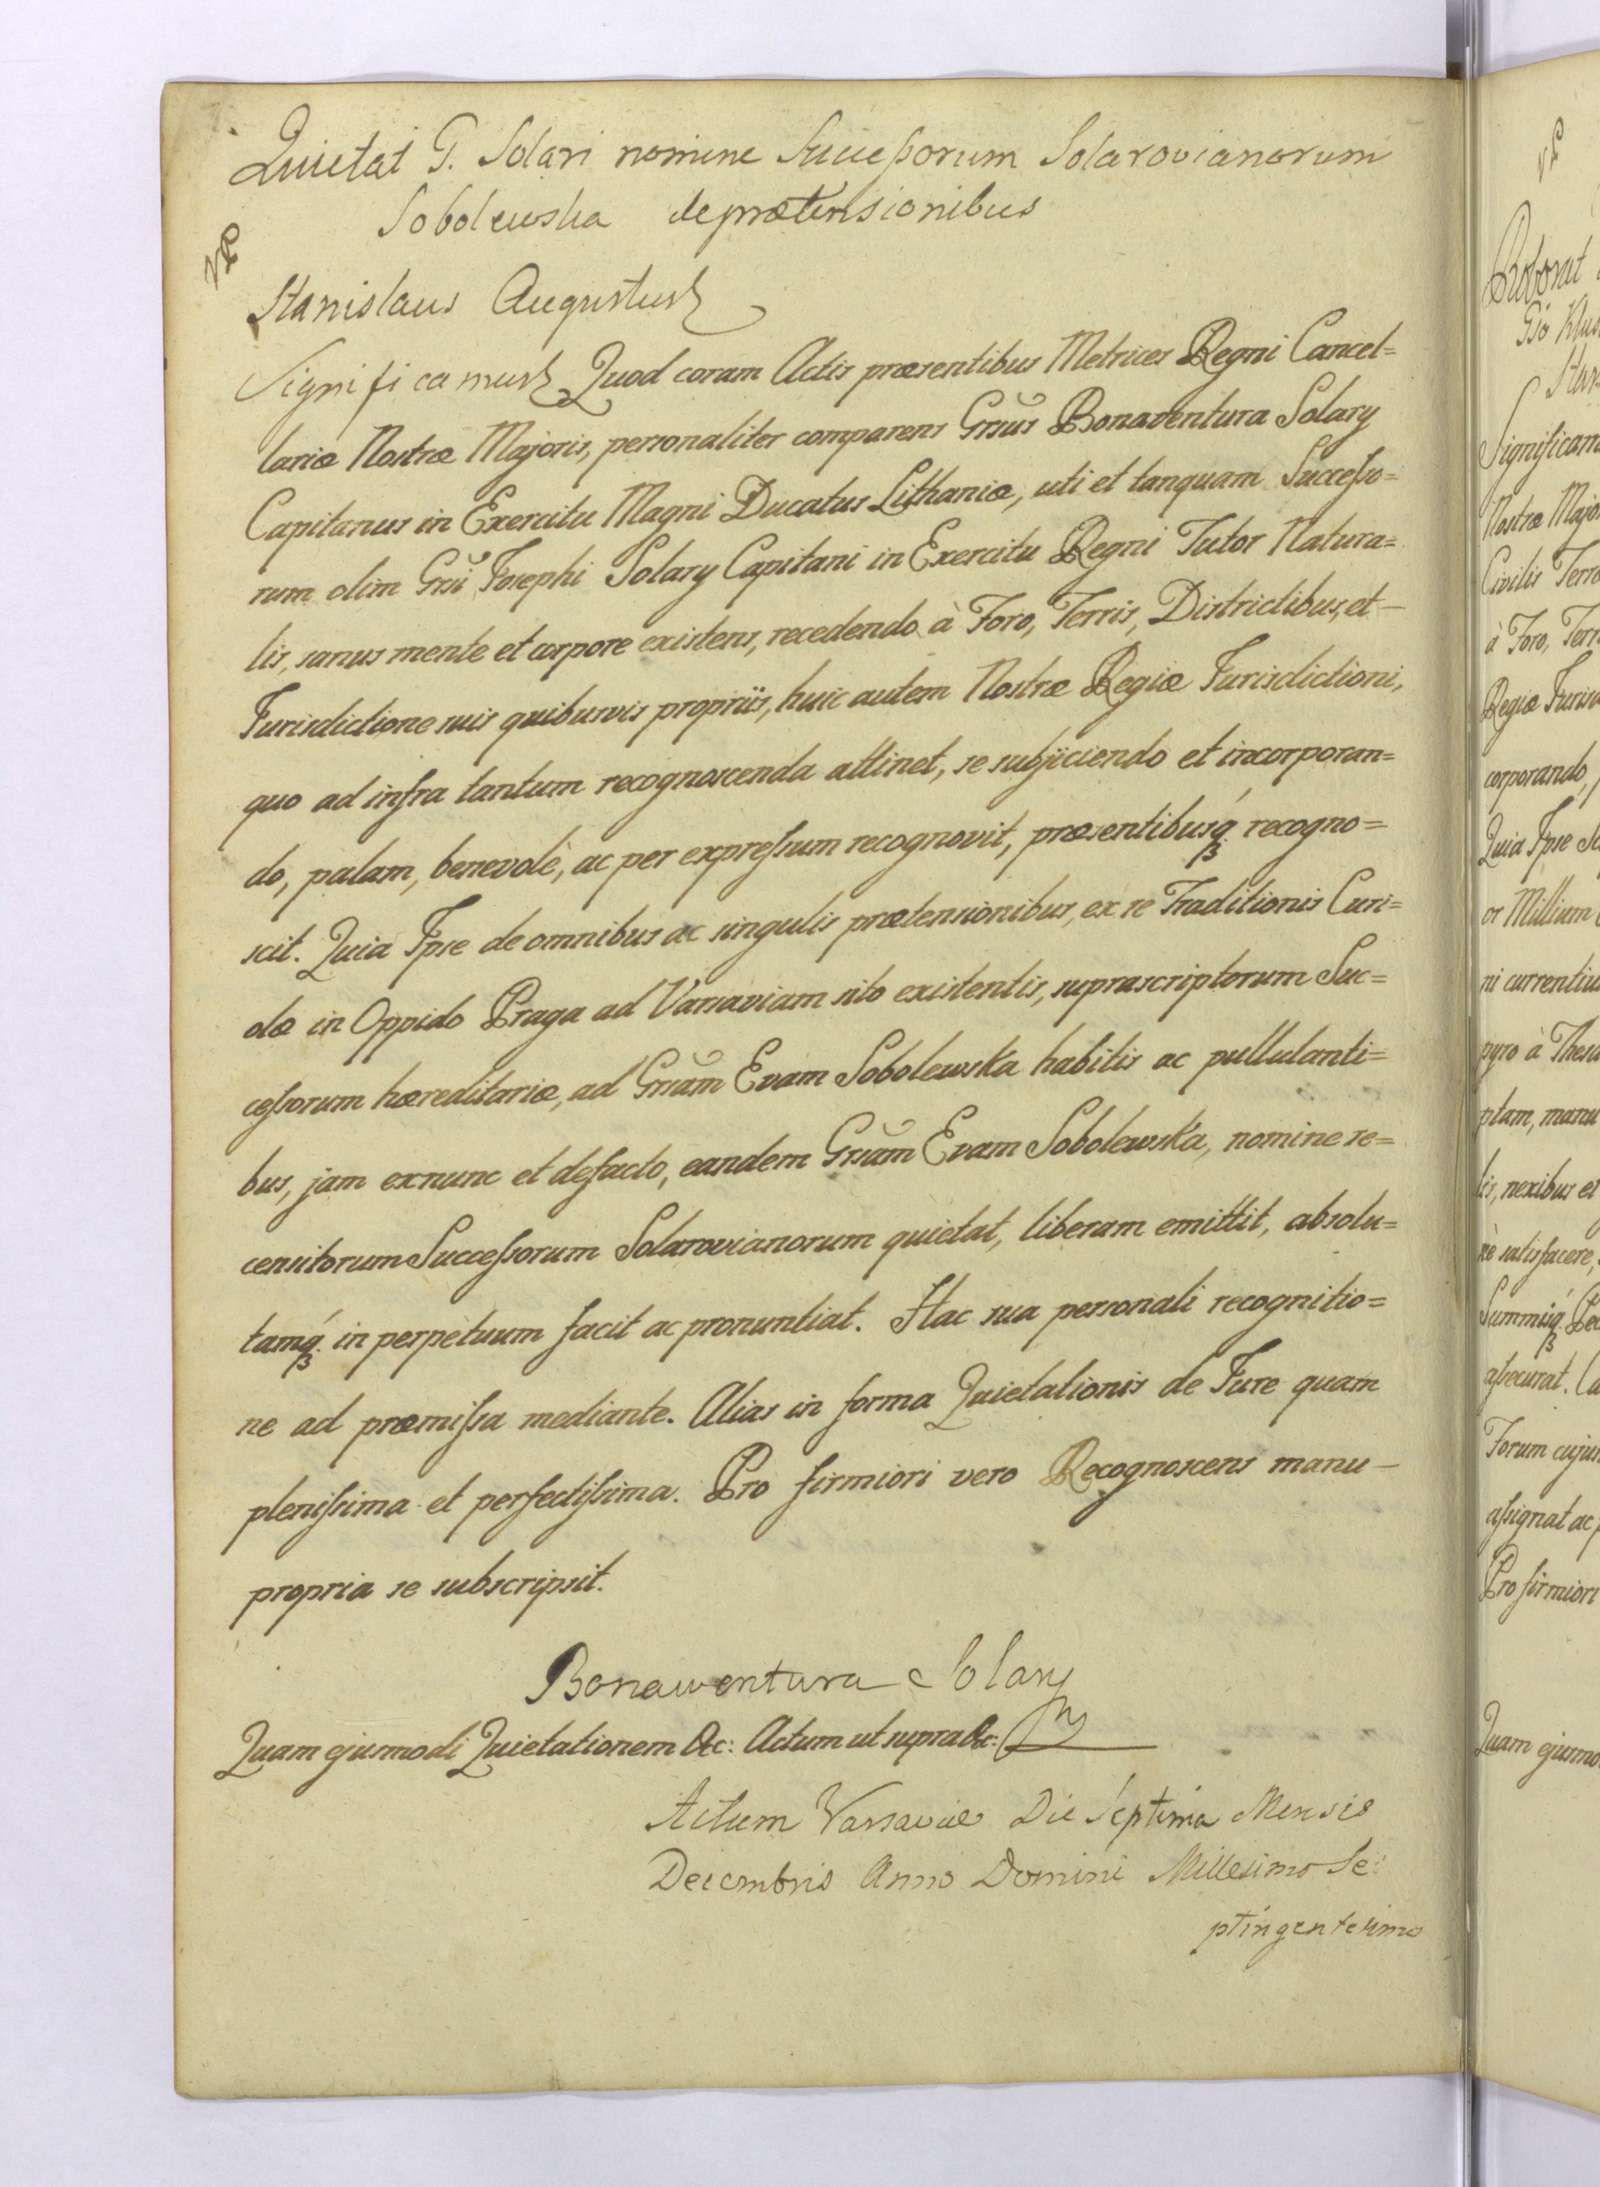 Quietat G. Solari nomine Successorum Solarovianorum
Sobolewska de prætensionibus
Stanislaus Augustus
Significamus Quod coram Actis præsentibus Metrices Regni Cancel=
lariæ Nostræ Majoris, personaliter comparens Grsus Bonaventura Solary
Capitanus in Exercitu Magni Ducatus Lithaniæ, uti et tanquam Successo=
rum olim Grsi Josephi Solary Capitani in Exercitu Regni Tutor Natura=
lis, sanus mente et corpore existens, recedendo à Foro, Terris, Districtibus, et
Jurisdictione suis quibusvis propriis, huic autem Nostræ Regiæ Jurisdictioni,
quo ad infra tantum recognoscenda attinet, se subjiciendo et incorporan=
do, palam, benevolè, ac per expressum recognovit, præsentibusq́ recogno=
scit. Quia Ipse de omnibus ac singulis prætensionibus, ex re Traditionis Curi=
olæ in Oppido Praga ad Varsaviam sito existentis, suprascriptorum Suc=
cessorum hæreditariæ, ad Grsam Evam Sobolewska habitis ac pullulanti=
bus, jam exnunc et defacto, eandem Grsam Evam Sobolewska, nomine re=
censitorum Successorum Solarovianorum quietat, liberam emittit, absolu=
tamq́ in perpetuum facit ac pronuntiat. Hac sua personali recognitio=
ne ad præmissa mediante. Alias in forma Quietationis de Jure quam
plenissima et perfectissima. Pro firmiori vero Recognoscens manu
propria se subscripsit.
Bonawentura Solary
Quam ejusmodi Quietationem &c: Actum ut supra &c:
Actum Varsaviæ Die Septima Mensis
Decembris Anno Domini Millesimo Se:
ptingentesimo